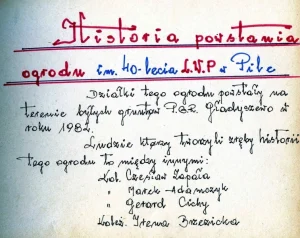 Historia powstania
ogrodu im. 40-lecia L.W.P w Pile
Działki tego ogrodu powstały na
terenie byłych gruntów P.G.R. Gładyszewo w
roku 1982.
Ludzie którzy tworzyli zręby historii
tego ogrodu to między innymi:
Kol. Czesław Zapała
" Marek Adamczyk
" Gerard Cichy
Koleż. Irena Brzezicka